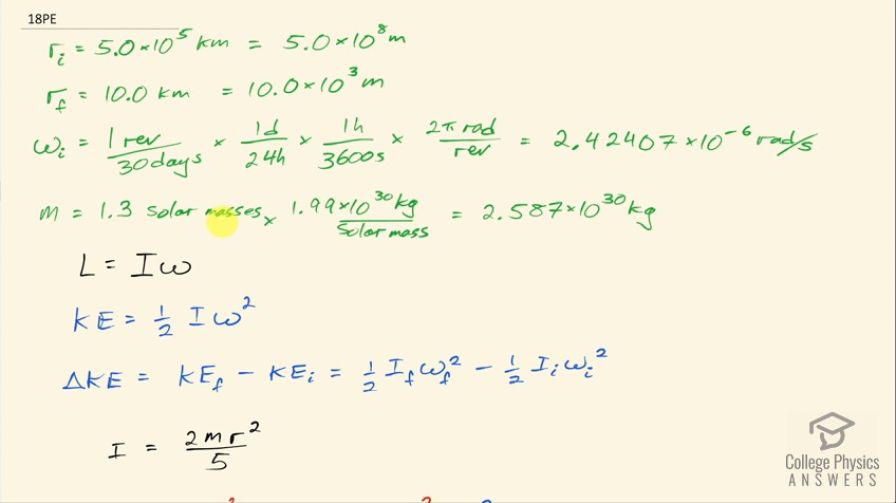 18PE
r_i = 5.0 × 10^5 km = 5.0 × 10^8 m
r_f = 10.0 km = 10.0 × 10^3 m
ω_i = 1 rev/30 days × 1d/24h × 1h/3600s × 2π rad/rev = 2.42407 × 10^-6 rad/s
m = 1.3 solar masses × 1.99 × 10^30 kg/solar mass = 2.587 × 10^30 kg
L = Iω
KE = 1/2 Iω^2
ΔKE = KE_f − KE_i = 1/2 I_f ω_f^2 − 1/2 I_i ω_i^2
I = 2mr^2/5
College Physics
ANSWERS